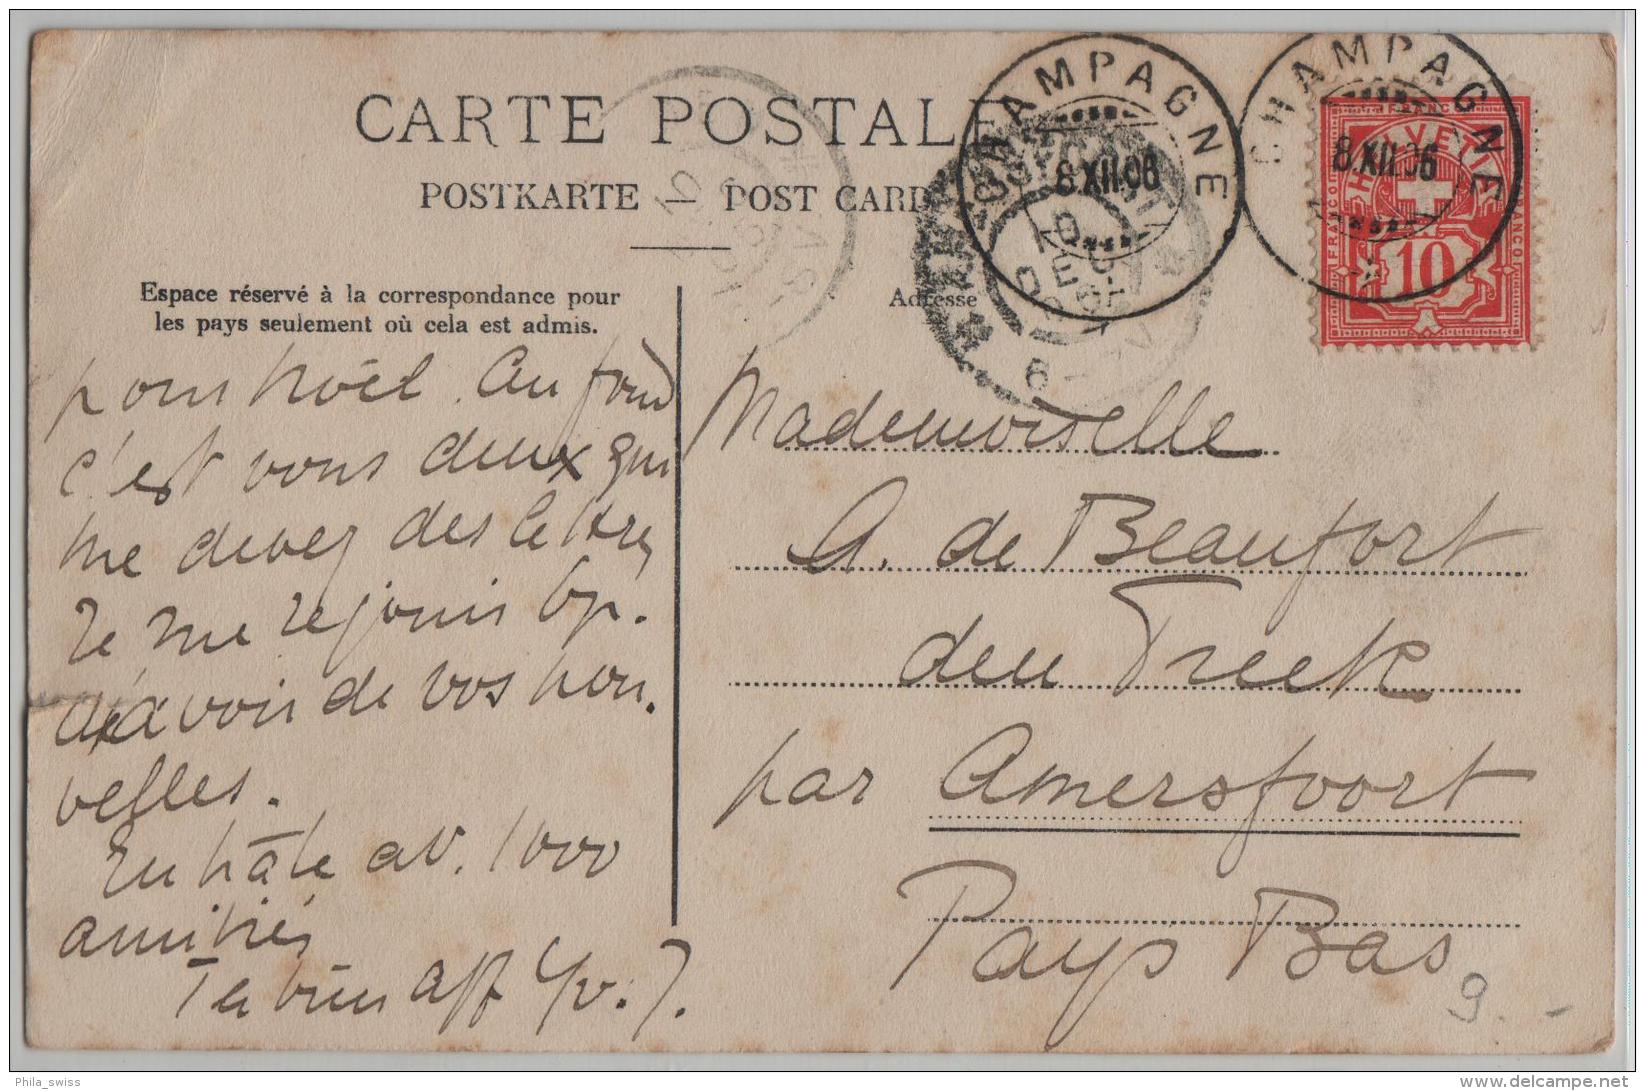 CARTE POSTALE
POSTKARTE — POST CARD
Espace réservé à la correspondance pour
les pays seulement où cela est admis.
Adresse
CHAMPAGNE
8.XII.06
CHAMPAGNE
8.XII.06
FRANCO
HELVETIA
FRANCO
FRANCO
10
10
DEC
6
pour Noël. Au fond
c'est vous deux qui
me devez des lettres
Je me rejouis
d'avoir de vos nou.
velles.
En hâte av. 1000
amitiés
T bien aff Yv. J.
Mademoiselle
A. de Beaufort
den Treek
par Amersfoort
Pays Bas
9.-
Phila_swiss
delcampe.net